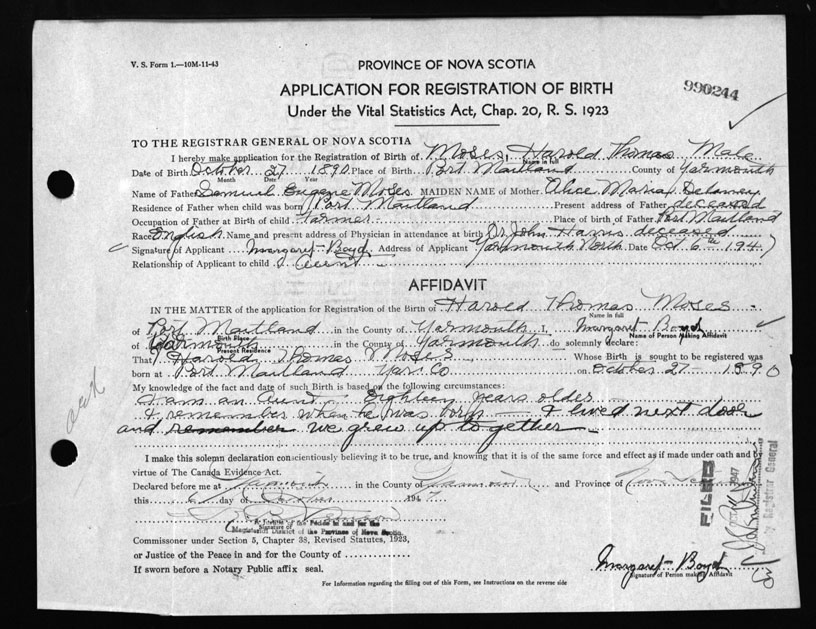 V. S. Form 1.—10M-11-43
PROVINCE OF NOVA SCOTIA
990244
APPLICATION FOR REGISTRATION OF BIRTH
Under the Vital Statistics Act, Chap. 20, R. S. 1923
TO THE REGISTRAR GENERAL OF NOVA SCOTIA
I hereby make application for the Registration of Birth of Moses, Harold Thomas Male
Name in full
Date of Birth October 27 1890 Place of Birth Port Maitland County of Yarmouth
Month Date Year
Name of Father Samuel Eugene Moses MAIDEN NAME of Mother Alice Maria Delaney
Residence of Father when child was born Port Maitland Present address of Father deceased
Occupation of Father at Birth of child Farmer Place of birth of Father Port Maitland
Race English Name and present address of Physician in attendance at birth Dr John Harris deceased
Signature of Applicant Margaret Boyd Address of Applicant Yarmouth North Date Oct 6th 1947
Relationship of Applicant to child Aunt
AFFIDAVIT
IN THE MATTER of the application for Registration of the Birth of Harold Thomas Moses
Name in full
of Port Maitland in the County of Yarmouth I, Margaret Boyd
Birth Place Name of Person Making Affidavit
of Yarmouth in the County of Yarmouth do solemnly declare:
Present Residence
That Harold Thomas Moses Whose Birth is sought to be registered was
born at Port Maitland Yar. Co on October 27 1890
My knowledge of the fact and date of such Birth is based on the following circumstances:
I am an Aunt - Eighteen years older
I remember when he was born — I lived next door
and remember we grew up together
I make this solemn declaration conscientiously believing it to be true, and knowing that it is of the same force and effect as if made under oath and by
virtue of The Canada Evidence Act.
Declared before me at Yarmouth in the County of Yarmouth and Province of Nova Scotia
this 6 day of October 1947
Signature of
Municipal District of the Province of Nova Scotia
Commissioner under Section 5, Chapter 38, Revised Statutes, 1923,
or Justice of the Peace in and for the County of
If sworn before a Notary Public affix seal.
Margaret Boyd
Signature of Person making Affidavit
For Information regarding the filling out of this Form, see Instructions on the reverse side
FILED
1947
Registrar General